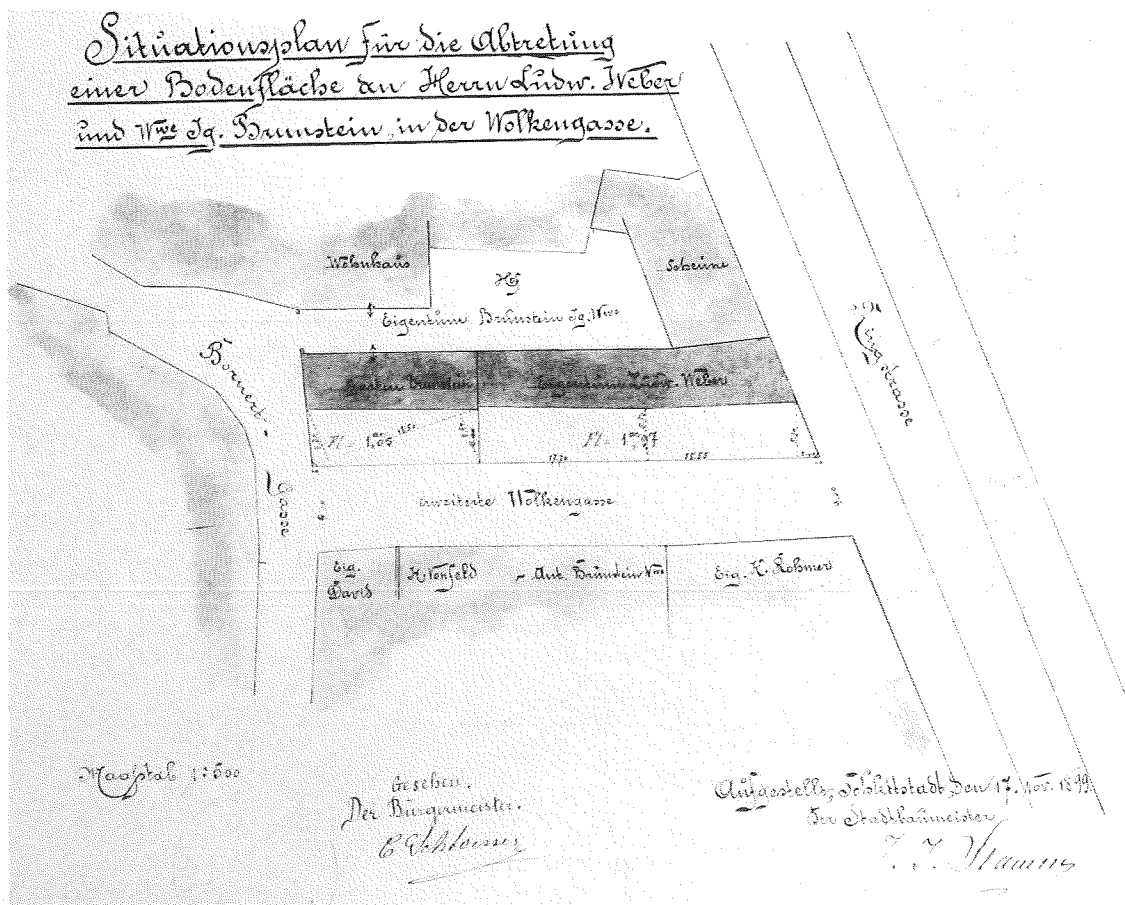 Situationsplan für die Abtretung
einer Bodenfläche an Herrn Ludw. Weber
und Wwe Jg. Brunstein, in der Wolkengasse.
Wohnhaus
Hof
Scheune
Eigentum Brunstein Jg. Wwe
Bornert-
Gasse
Ringstrasse
Garten Brunstein
Eigentum Ludw. Weber
Fl = 1,05
Fl = 1,97
17,70
erweiterte Wolkengasse
Eig.
David
H. Vonfeld
Ant. Brunstein Wwe
Eig. K. Rohmer
Maaßstab 1:500
Gesehen.
Der Bürgermeister.
Aufgestellt, Schlettstadt, den 17. Nov. 1899.
Der Stadtbaumeister